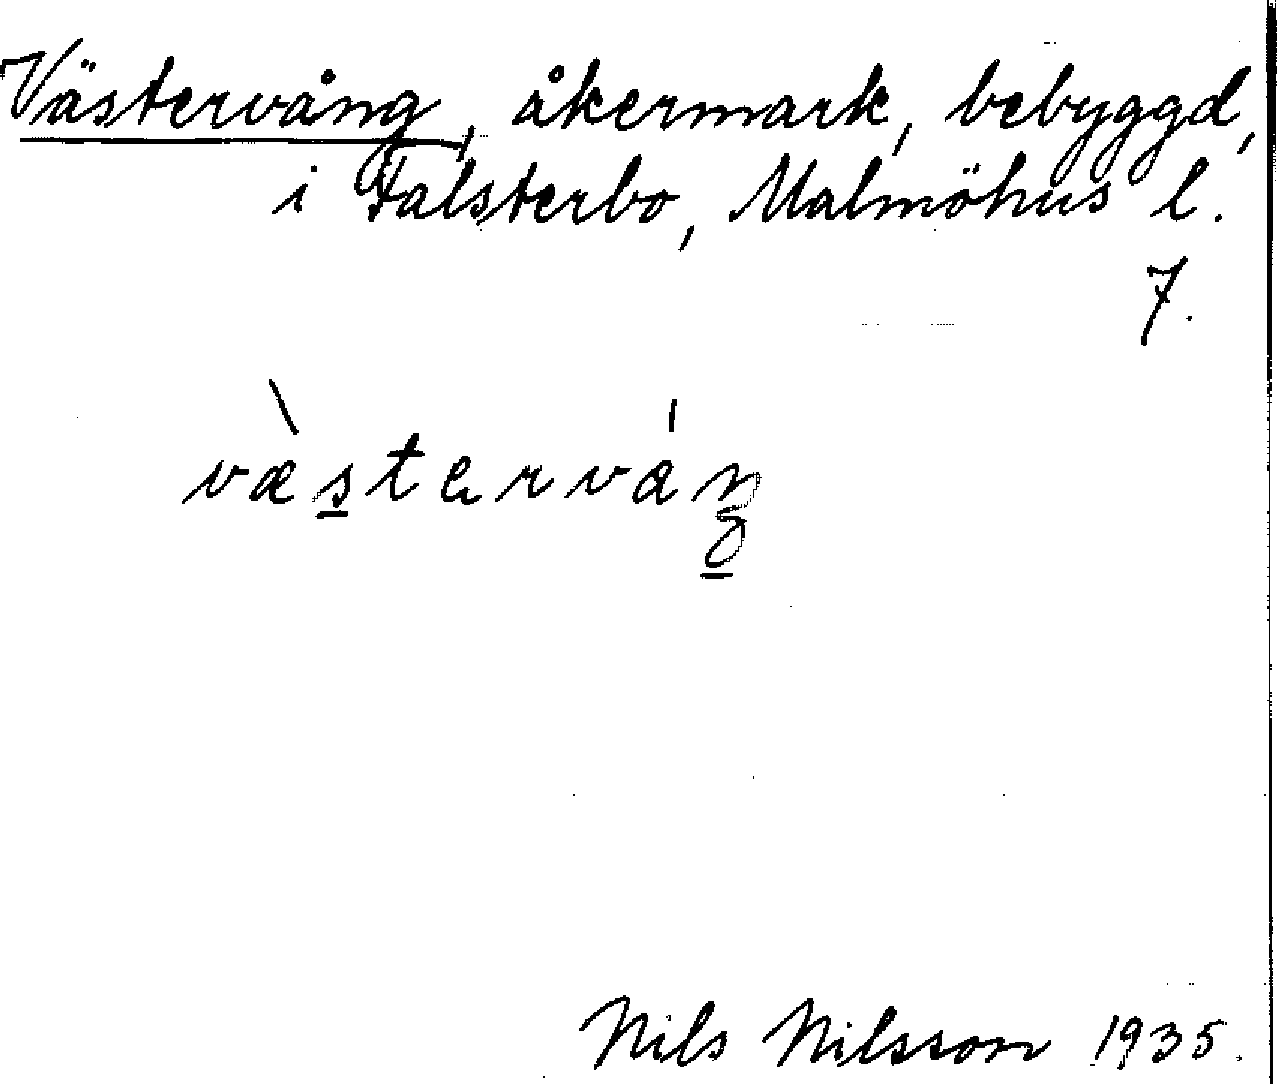 Västervång, åkermark, bebyggd,
i Falsterbo, Malmöhus l.
7.
væ̀sterváŋ
Nils Nilsson 1935.